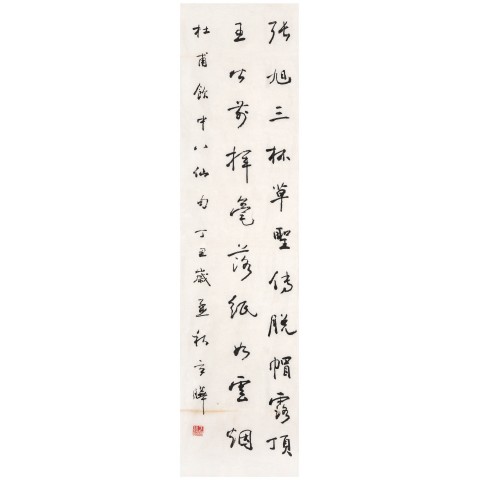 張旭三杯草聖傳脫帽露頂
王公前揮毫落紙如雲烟
杜甫飲中八仙句丁丑歲孟秋